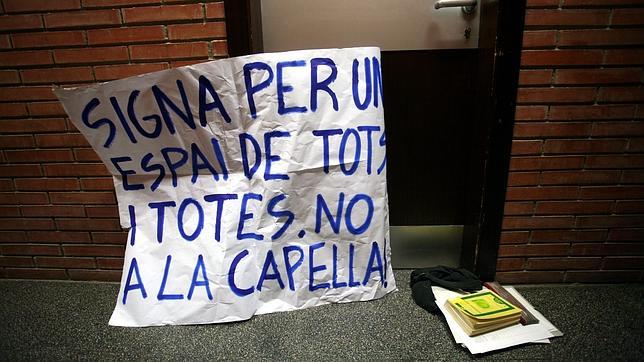 SIGNA PER UN
ESPAI DE TOTS
I TOTES. NO
A LA CAPELLA!